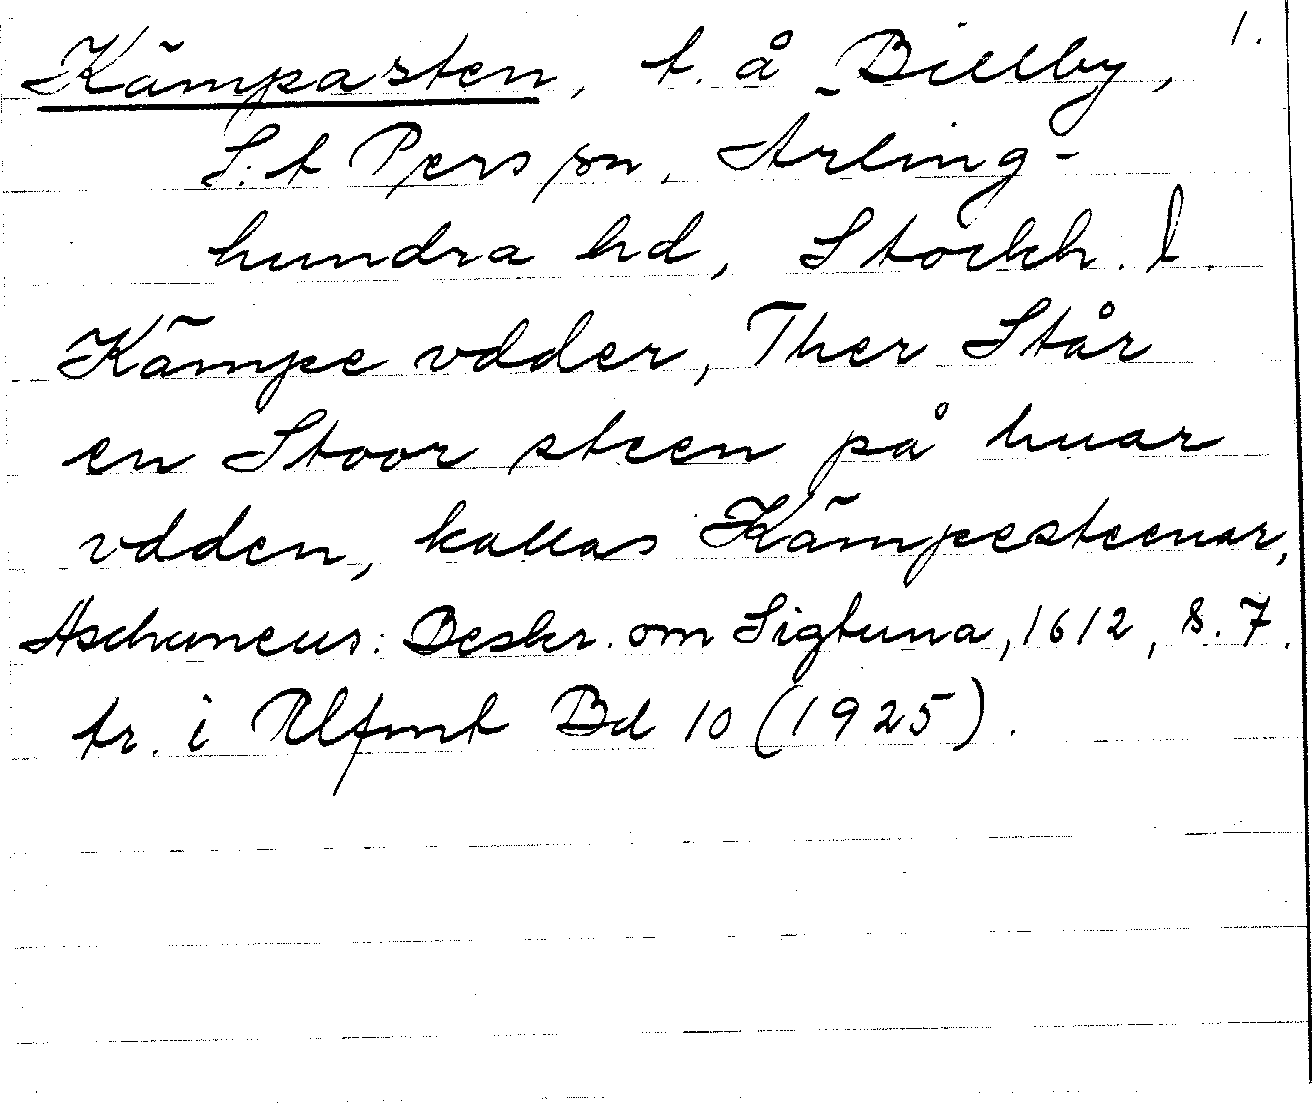 Kämpasten, t. å Billby, 1.
S:t Pers sn, Ärling-
hundra hd, Stockh. l.
Kämpe vdder, Ther Står
en Stoor steen på huar
vdden, kallas Kämpesteenar,
Aschaneus: Beskr. om Sigtuna, 1612, s. 7.
tr. i Ulfmt Bd 10 (1925).